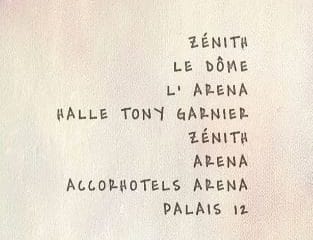 ZÉNITH
LE DÔME
L' ARENA
HALLE TONY GARNIER
ZÉNITH
ARENA
ACCORHOTELS ARENA
PALAIS 12